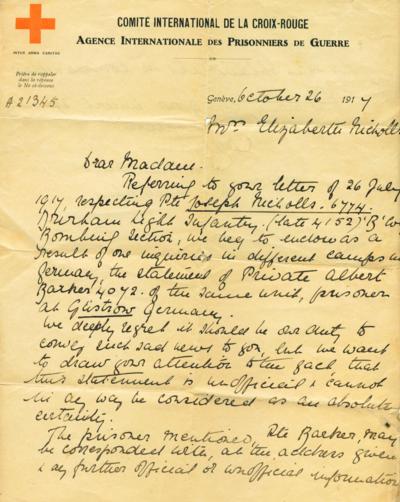 COMITÉ INTERNATIONAL DE LA CROIX-ROUGE
AGENCE INTERNATIONALE DES PRISONNIERS DE GUERRE
INTER ARMA CARITAS
Prière de rappeler
dans la réponse
le No ci-dessous
A 21345
Genève, October 26 1917
Mrs Elizabeth Nicholls
Dear Madam.
Referring to your letter of 26 July
1917, respecting Pte Joseph Nicholls. 6774.
Durham Light Infantry. (late 4152) 'B' Co
Bombing Section, we beg to enclose as a
result of our inquiries in different camps in
Germany, the statement of Private Albert
Barker 4072. of the same unit, prisoner
at Güstrow Germany.
We deeply regret it should be our duty to
convey such sad news to you, but we want
to draw your attention to the fact, that
this statement is unofficial & cannot
in any way be considered as an absolute
certainty.
The prisoner mentioned, Pte Barker, may
be corresponded with, at the address given
& any further official or unofficial information